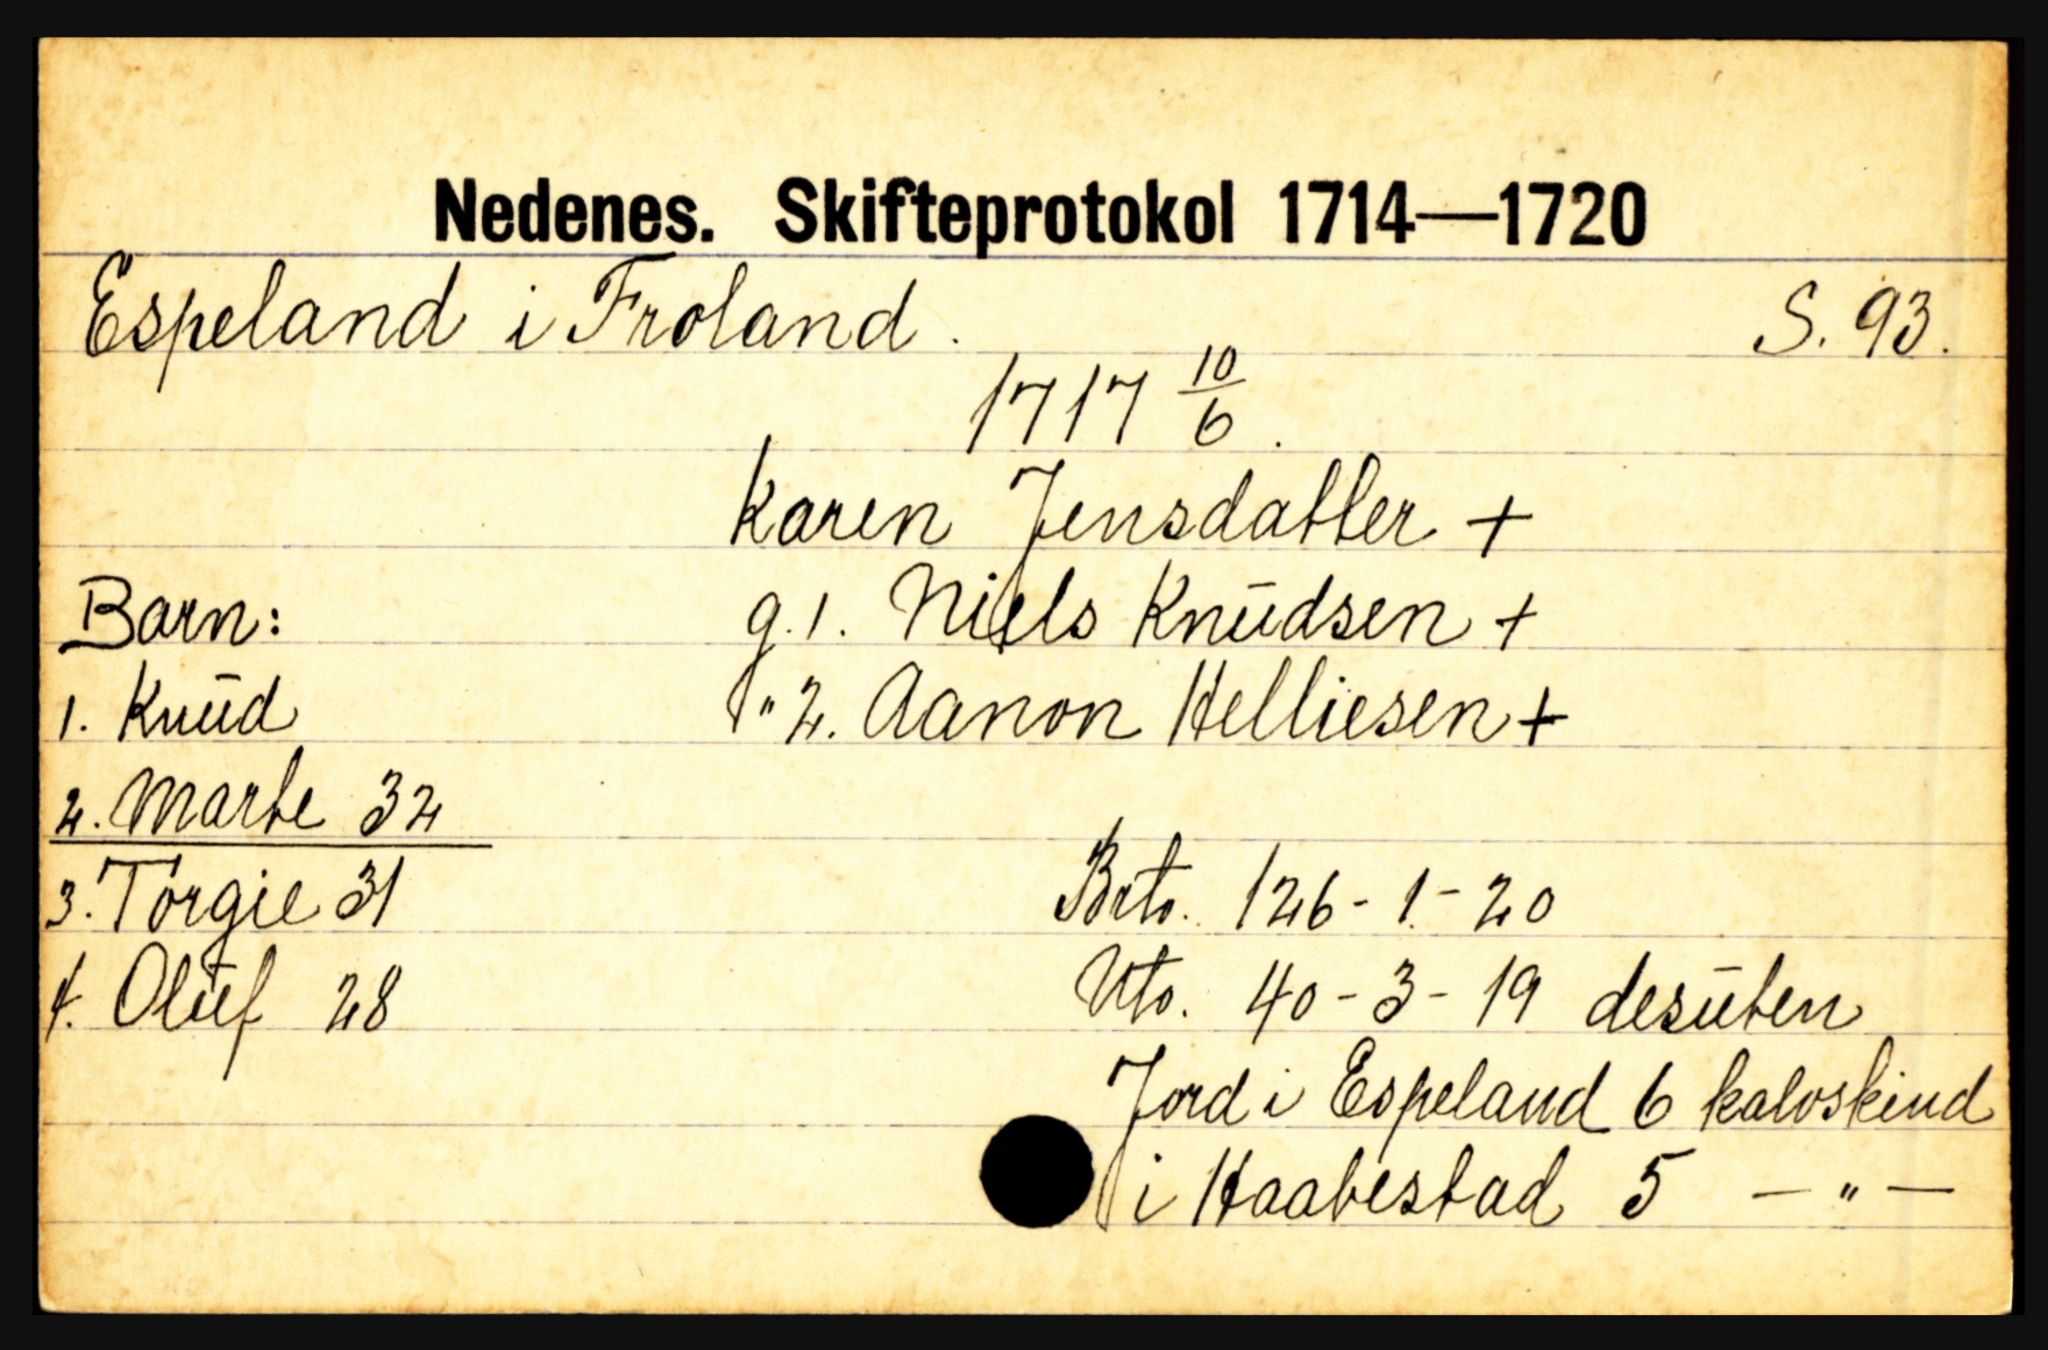 Nedenes. Skifteprotokol 1714—1720
Espeland i Froland. S. 93.
1717 10/6.
Karen Jensdatter +
Barn: g. 1. Niels Knŭdsen +
1. Knŭd " 2. Aanon Helliesen +
2. Marte 32
3. Torgie 31 Brto. 126-1-20
4. Olŭf 28 Nto. 40-3-19 desŭten
Jord i Espeland 6 kalvskind
i Haabestad 5 — " —